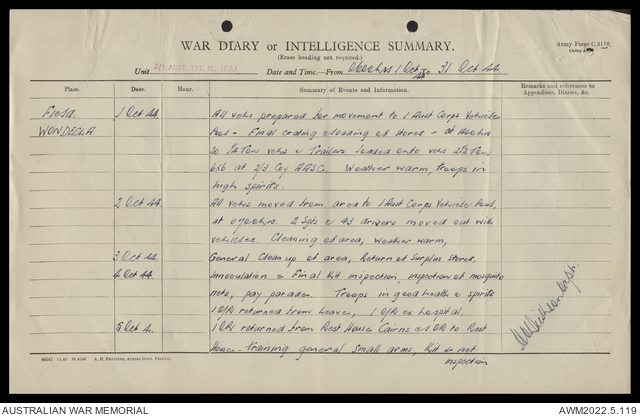 Army Form C.2118.
WAR DIARY or INTELLIGENCE SUMMARY.
(Erase heading not required.)
Unit 2/1 AUST. TPT. PL. Date and Time—From 0600hrs 1 Oct 44 To 31 Oct 44
Place. Date. Hour. Summary of Events and Information. Remarks and references to
Appendices, Diaries, &c.
Field 1 Oct 44 All vehs prepared for movement to 1 Aust Corps Vehicle
WONDECLA Pool - Final crating & loading of stores - at
Ton vehs & Trailers loaded onto vehs 2½ Ton
6x6 at 2/3 Coy AASC. Weather warm, troops in
high spirits.
2 Oct 44 All vehs moved from area to 1 Aust Corps Vehicle Pool,
at 0700hrs. 2 Sgts & 43 drivers moved out with
vehicles. Cleaning of area, weather warm,
3 Oct 44 General Clean up of area, Return of Surplus Stores.
4 Oct 44 Innoculation & Final Kit inspection, inspection of mosquito
nets, pay parades. Troops in good health & spirits
1 O/R returned from leave, 1 O/R ex hospital.
5 Oct 44 1 O/R returned from Rest House Cairns to Rest
House. Training general small arms, Kit & net
inspection
11.43 A. H. PETTIFER, ACTING GOVT. PRINTER.
AUSTRALIAN WAR MEMORIAL
AWM2022.5.119